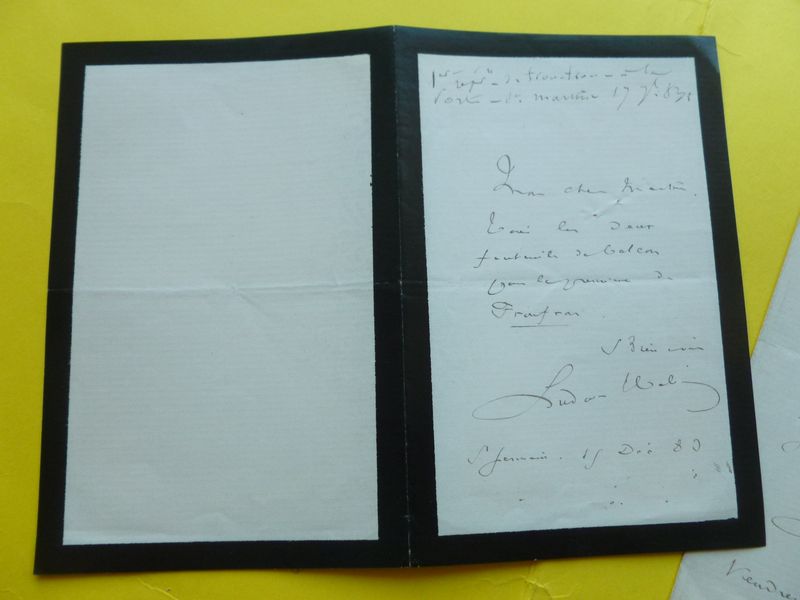 1ère repr. de froufrou - à la
Porte - St. Martin 17 Xbre 83
Mon cher
Voici les deux
fauteuils de balcon
pour la première de
Froufrou.
Bien à vous
Ludovic Halévy
St Germain. 15 Déc 83
Vendre